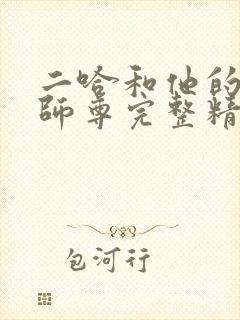 二哈和他的
師尊完整精
包河行